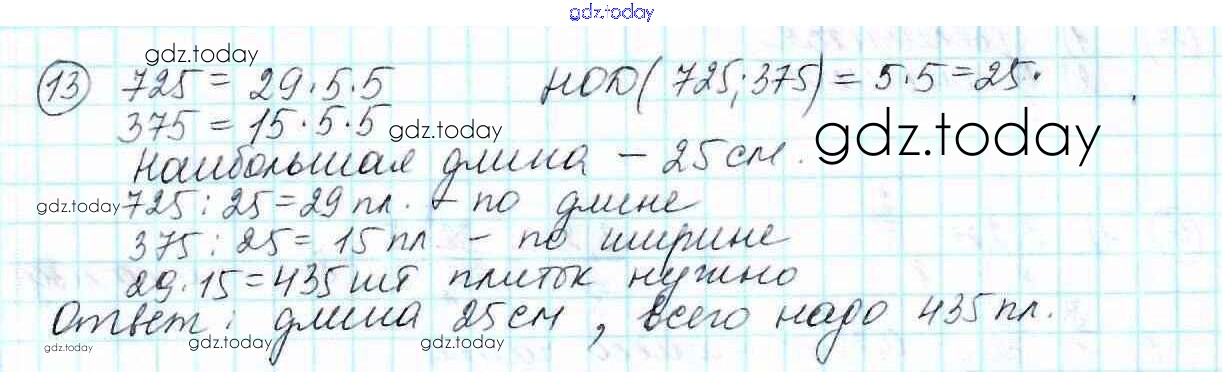 gdz.today
gdz.today
13 725 = 29·5·5 НОД(725;375) = 5·5 = 25.
375 = 15·5·5 gdz.today gdz.today
Наибольшая длина – 25 см.
gdz.today 725 : 25 = 29 пл. – по длине
375 : 25 = 15 пл – по ширине
29·15 = 435 шт плиток нужно
Ответ: длина 25 см, всего надо 435 пл.
gdz.today gdz.today gdz.today